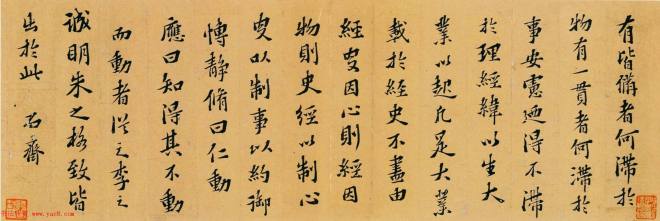 有皆備者何滯於
物有一貫者何滯於
事安憲迺得不滯
於理經緯以生大
業以起凡足大業
載於經史不盡由
經叟因心則經因
物則史經以制心
叟以制事以約御
博靜脩曰仁動
應曰知得其不動
而動者從之李之
誠明朱之格致皆
出於此 石齋
www.yac8.com